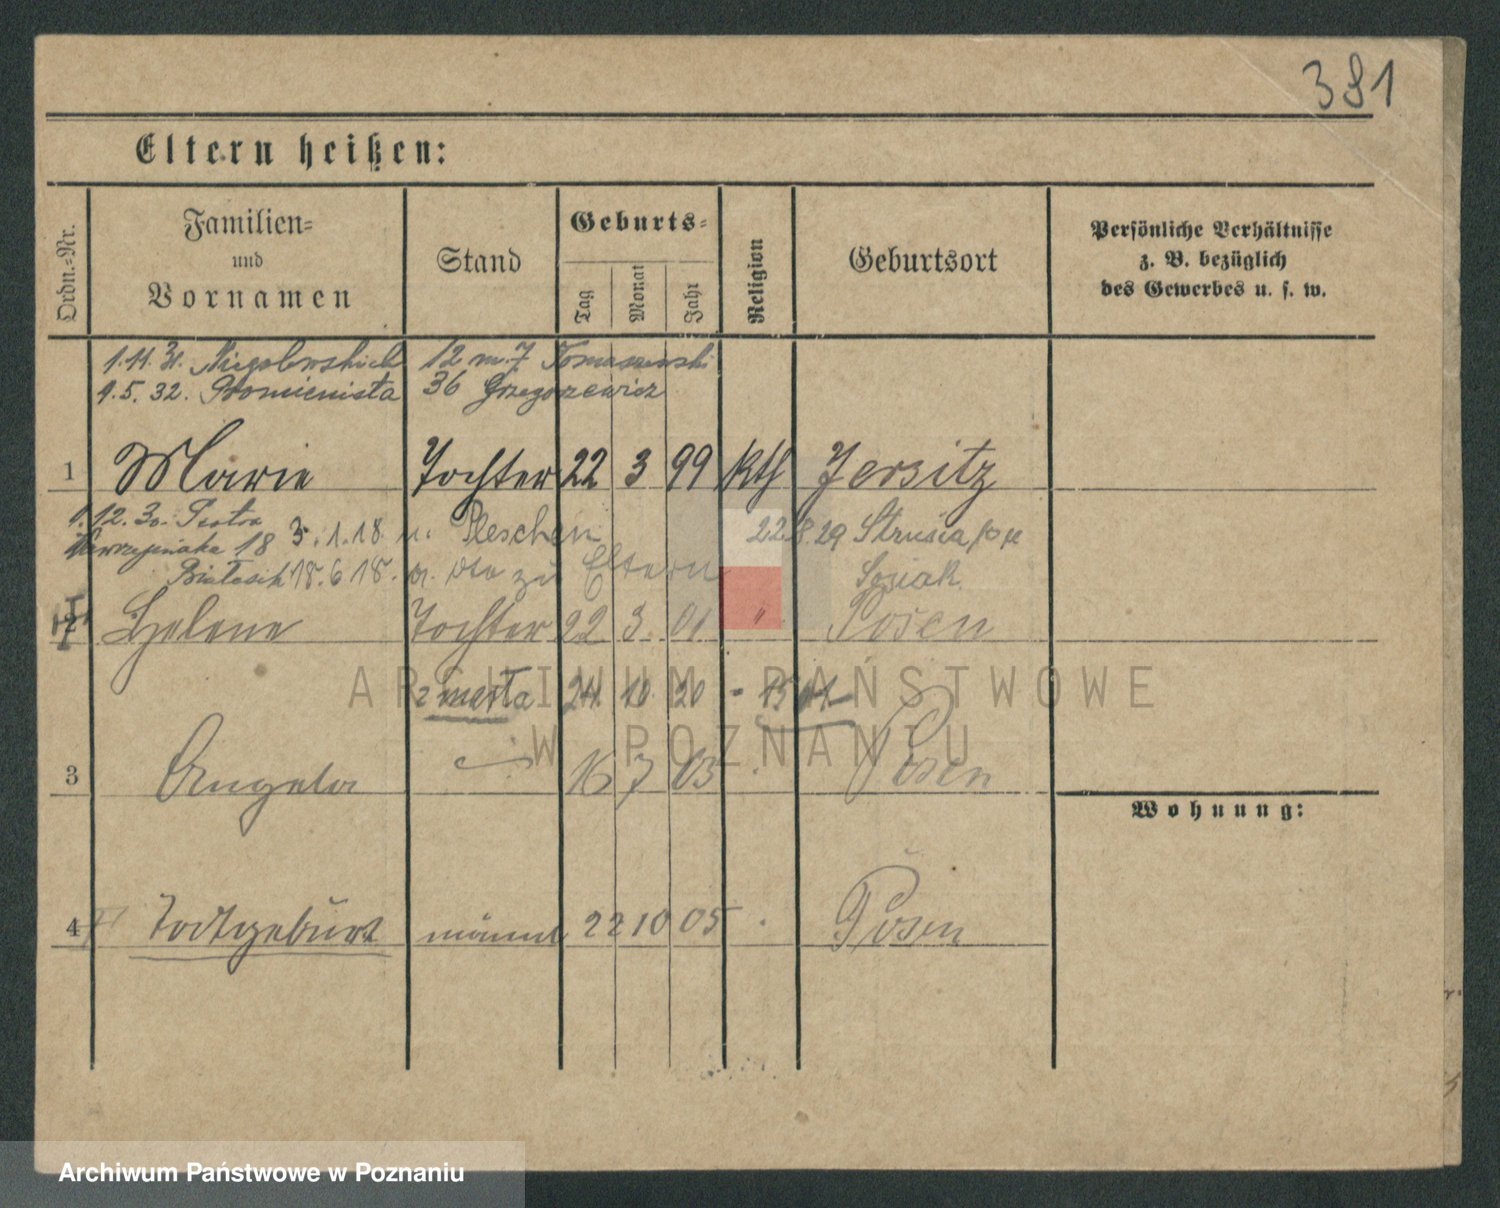 381
Eltern heißen:
Ordn.-Nr.
Familien-
und
Vornamen
Stand
Geburts-
Tag
Monat
Jahr
Religion
Geburtsort
Persönliche Verhältnisse
z. B. bezüglich
des Gewerbes u. s. w.
1.11.31. Niegolewskich 12 m. 7 Tomaszewski
1.5.32. Promienista 36 Grzegorzewicz
1 Marie Tochter 22 3 99 kth Jersitz
1.12.30. Piotra
Wawrzyniaka 18 3.1.18 n. Pleschen 22.8.29 Strusia
18.6.18. zu Eltern
2 Helene Tochter 22 3. 01 " Posen
24 10 20
3 Angela 16 7 03 Posen
Wohnung:
4 Todtgeburt männl 22 10 05 Posen
ARCHIWUM PAŃSTWOWE
W POZNANIU
Archiwum Państwowe w Poznaniu